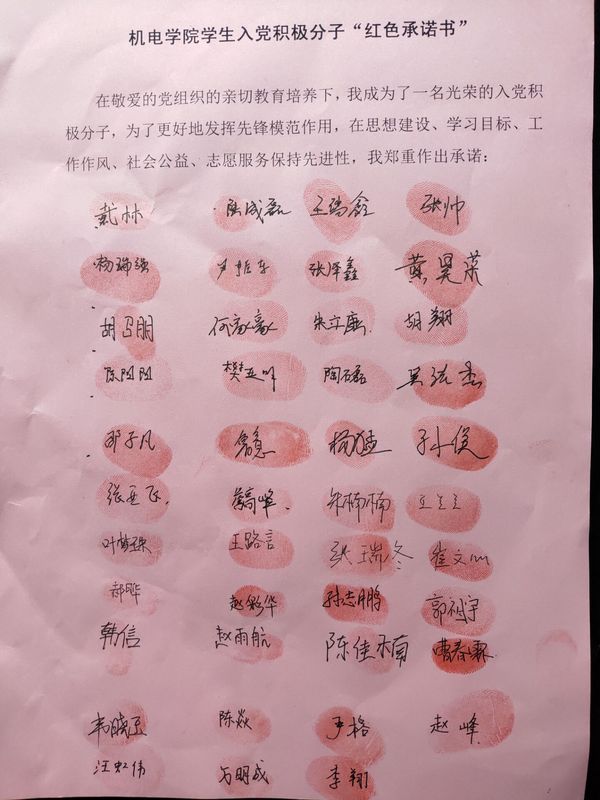 机电学院学生入党积极分子“红色承诺书”
在敬爱的党组织的亲切教育培养下，我成为了一名光荣的入党积
极分子，为了更好地发挥先锋模范作用，在思想建设、学习目标、工
作作风、社会公益、志愿服务保持先进性，我郑重作出承诺：
戴林 王瑞鑫 张帅
杨瑞强 张泽鑫 黄昊荣
何豪豪 朱立廉 胡翔
陈阳阳 樊亚 陶磊
邓子凡 杨猛
张亚飞 高峰 朱楠楠
王路言 张瑞冬 崔文
郝晔 赵彩华 孙志鹏 郭祖宇
韩信 赵雨航 陈佳楠 曹春霖
韦晓 陈焱 严格 赵峰
汪虹伟 方明成 李翔